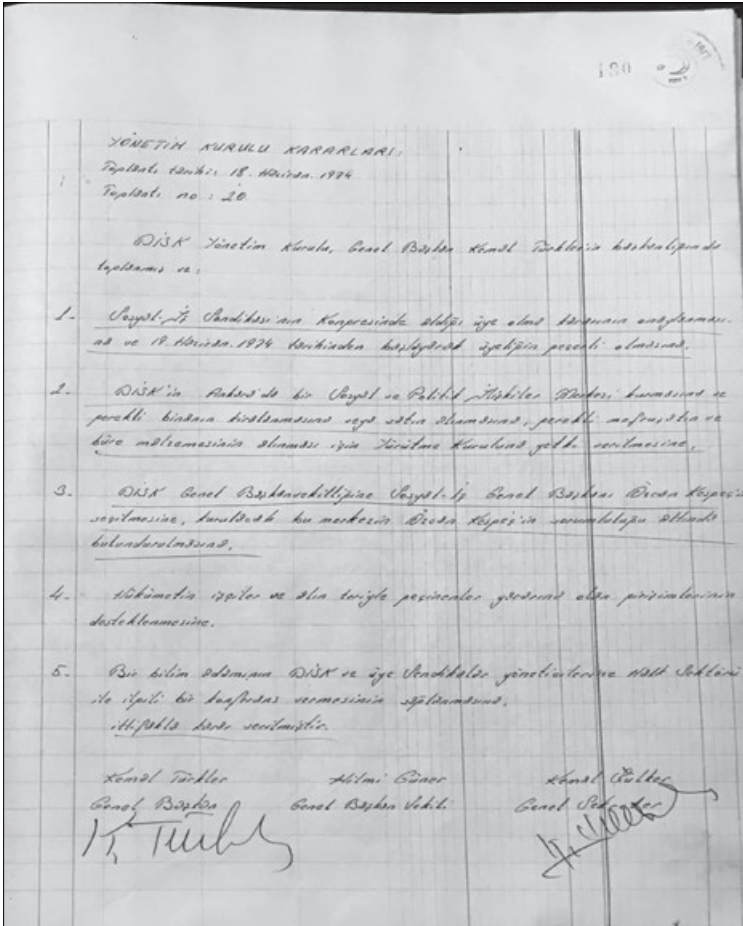 180
YÖNETİM KURULU KARARLARI:
Toplantı tarihi: 18. Haziran. 1974
Toplantı no. : 20
DİSK Yönetim Kurulu, Genel Başkan Kemal Türkler'in başkanlığında
toplanmış ve:
1- Sosyal-İş Sendikası'nın Kongresinde aldığı üye olma kararının onaylanması-
na ve 19. Haziran. 1974 tarihinden başlayarak üyeliğin geçerli olmasına.
2- DİSK'in Ankara'da bir Sosyal ve Politik İlişkiler Merkezi kurmasına ve
gerekli binanın kiralanmasına veya satın alınmasına, gerekli mefruşatın ve
büro malzemesinin alınması için Yürütme Kuruluna yetki verilmesine,
3- DİSK Genel Başkanvekilliğine Sosyal-İş Genel Başkanı Özcan Kesgeç'in
seçilmesine, kurulacak bu merkezin Özcan Kesgeç'in sorumluluğu altında
bulundurulmasına,
4- Hükümetin işçiler ve alın teriyle geçinenler yararına olan girişimlerinin
desteklenmesine.
5- Bir bilim adamının DİSK ve üye Sendikalar yöneticilerine Halk Sektörü
ile ilgili bir konferans vermesinin sağlanmasına,
ittifakla karar verilmiştir.
Kemal Türkler Hilmi Güner Kemal Sülker
Genel Başkan Genel Başkan Vekili Genel Sekreter
K. Türkler